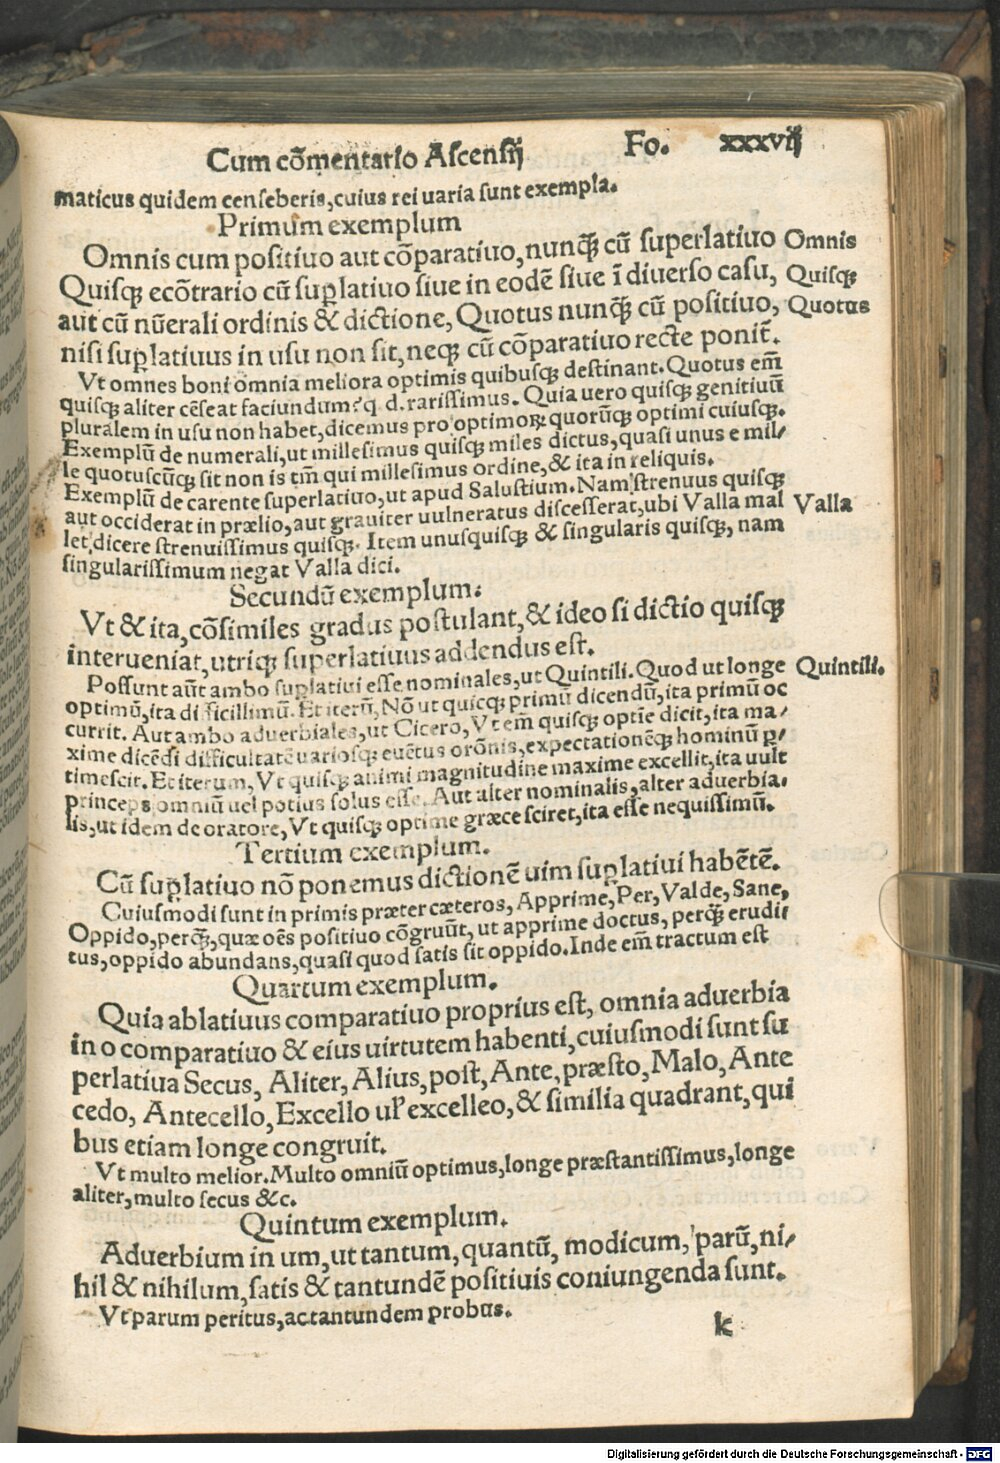 Cum cõmentario Ascensij Fo. xxxvij
maticus quidem censeberis, cuius rei uaria sunt exempla.
Primum exemplum
Omnis cum positiuo aut cõparatiuo, nunq̃ cũ superlatiuo Omnis
Quisq; ecõtrario cũ suplatiuo siue in eodẽ siue ĩ diuerso casu, Quisq;
aut cũ nũerali ordinis & dictione, Quotus nunq̃ cũ positiuo, Quotus
nisi suplatiuus in usu non sit, neq; cũ cõparatiuo recte ponit̃.
Vt omnes boni omnia meliora optimis quibusq; destinant. Quotus em̃
quisq; aliter cẽseat faciundum? q. d. rarissimus. Quia uero quisq; genitiuũ
pluralem in usu non habet, dicemus pro optimoꝝ quorũq; optimi cuiusq;.
Exemplũ de numerali, ut millesimus quisq; miles dictus, quasi unus e mil/
le quotuscũq; sit non is tm̃ qui millesimus ordine, & ita in reliquis.
Exemplũ de carente superlatiuo, ut apud Salustium. Nam strenuus quisq;
aut occiderat in prælio, aut grauiter uulneratus discesserat, ubi Valla mal Valla
let, dicere strenuissimus quisq;. Item unusquisq; & singularis quisq;, nam
singularissimum negat Valla dici.
Secundũ exemplum.
Vt & ita, cõsimiles gradus postulant, & ideo si dictio quisq;
interueniat, utriq; superlatiuus addendus est.
Possunt aũt ambo suplatiui esse nominales, ut Quintili. Quod ut longe Quintili.
optimũ, ita difficillimũ. Et iterũ, Nõ ut quicq; primũ dicendũ, ita primũ oc
currit. Aut ambo aduerbiales, ut Cicero, Vt em̃ quisq; optĩe dicit, ita ma/
xime dicẽdi difficultatẽ uariosq; euẽtus orõnis, expectationẽq; hominũ p/
timescit. Et iterum, Vt quisq; animi magnitudine maxime excellit, ita uult
princeps omniũ uel potius solus esse. Aut alter nominalis, alter aduerbia.
lis, ut idem de oratore, Vt quisq; optime græce sciret, ita esse nequissimũ.
Tertium exemplum.
Cũ suplatiuo nõ ponemus dictionẽ uim suplatiui habẽtẽ.
Cuiusmodi sunt in primis præter cæteros, Apprime, Per, Valde, Sane,
Oppido, perq̃, quæ oẽs positiuo cõgruũt, ut apprime doctus, perq̃ erudi/
tus, oppido abundans, quasi quod satis sit oppido. Inde em̃ tractum est
Quartum exemplum.
Quia ablatiuus comparatiuo proprius est, omnia aduerbia
in o comparatiuo & eius uirtutem habenti, cuiusmodi sunt su
perlatiua Secus, Aliter, Alius, post, Ante, præsto, Malo, Ante
cedo, Antecello, Excello ul' excelleo, & similia quadrant, qui
bus etiam longe congruit.
Vt multo melior. Multo omniũ optimus, longe præstantissimus, longe
aliter, multo secus &c.
Quintum exemplum.
Aduerbium in um, ut tantum, quantũ, modicum, parũ, ni/
hil & nihilum, satis & tantundẽ positiuis coniungenda sunt.
Vt parum peritus, ac tantundem probus.
k
Digitalisierung gefördert durch die Deutsche Forschungsgemeinschaft - DFG